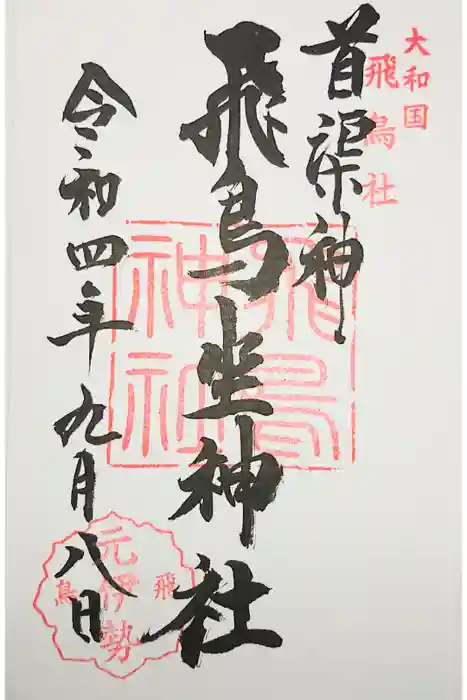 大和国
飛鳥社
首渠神
飛鳥坐神社
飛鳥
神社
令和四年九月八日
飛鳥
元伊勢